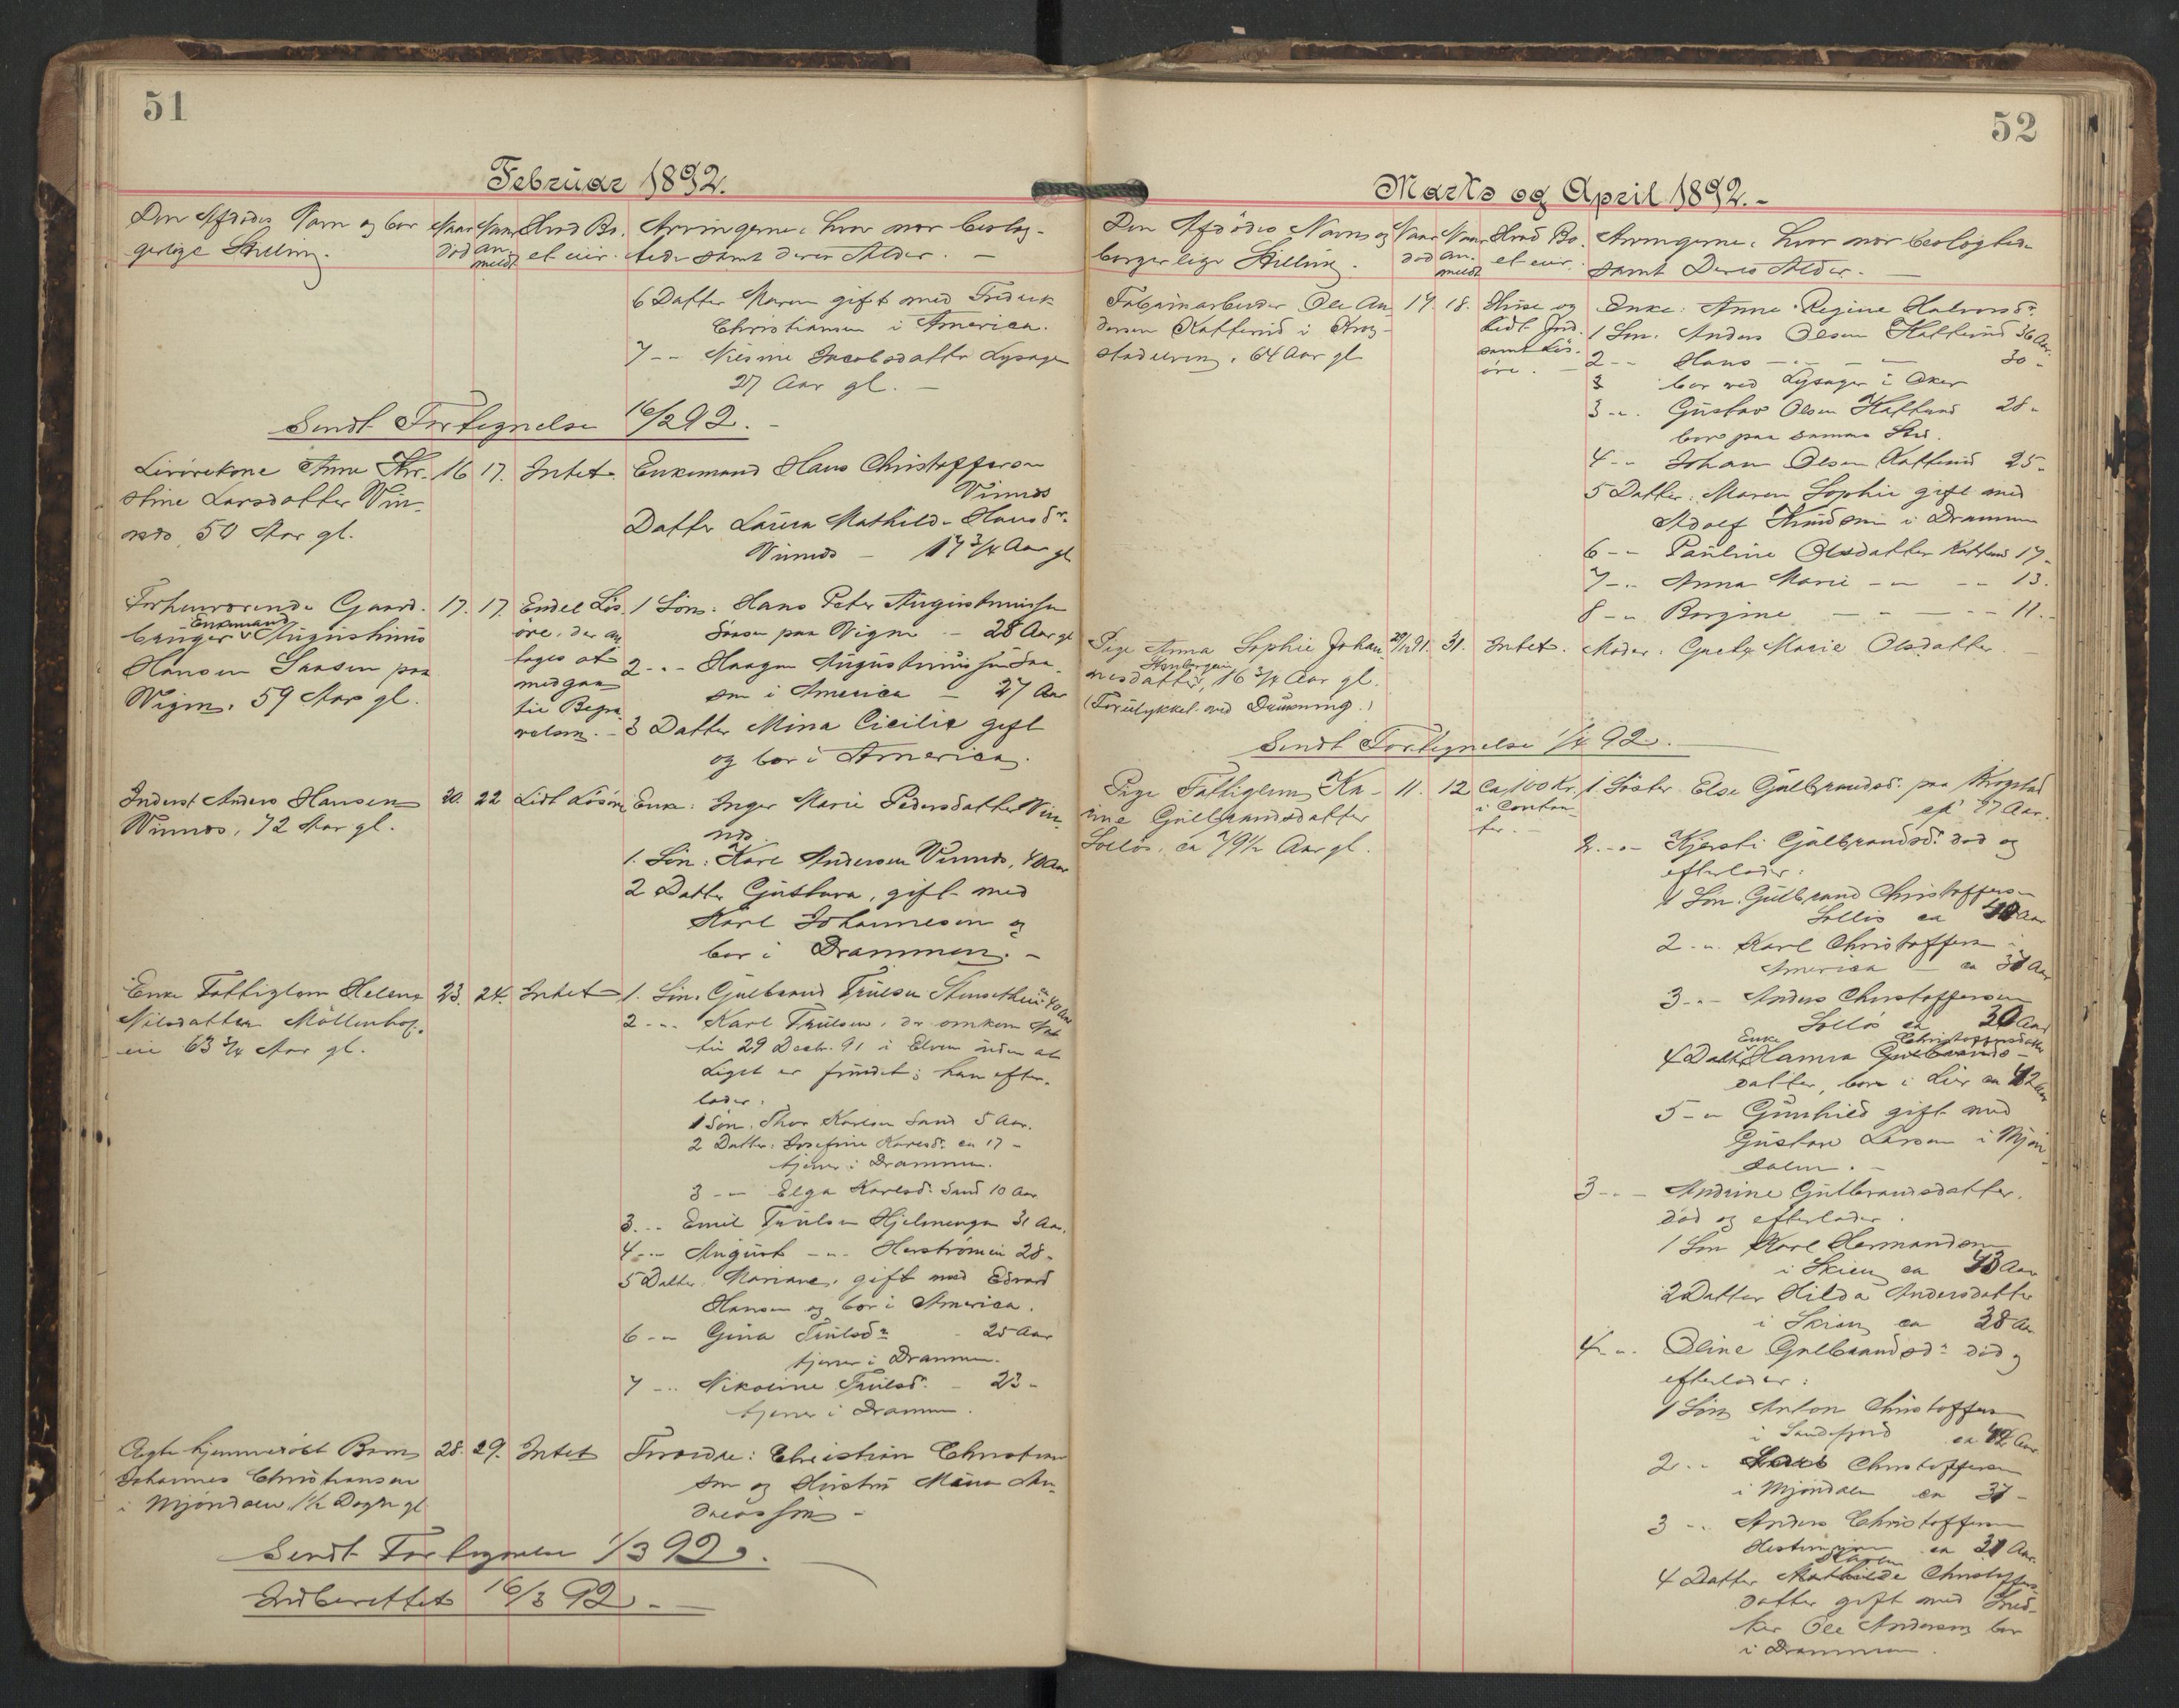 51
Februar 1892.
Den Afdødes Navn og bor-
gerlige Stilling.
Naar
død
Naar
an-
meldt
Hvad Bo-
et eier.
Arvingerne, hvor nær beslæg-
tede samt deres Alder. -
6 Datter Maren gift med Fredrik
Christiansen i America.
7 - - Nilsine Jacobsdatter Lysager
27 Aar gl. -
Sendt Fortegnelse 16/2 92. -
Livørekone Anne Kir-
stine Larsdatter Vin-
næs, 50 Aar gl.
16
17.
Intet.
Enkemand Hans Christoffersen
Vinnæs
Datter Laura Mathilde Hansdr.
Vinnæs - 17 3/4 Aar gl
Forhenværende Gaard-
Enkemand
bruger Augustinus
Hansen Saasen paa
Vigen, 59 Aar gl.
17.
17.
Endel Løs-
øre, der an-
tages at
medgaa
til Begra-
velsen. -
1 Søn: Hans Peter Augustinussen
Saasen paa Vigen - 28 Aar gl
2 - - Haagen Augustinussen Saa-
sen i America - 27 Aar
3 Datter Mina Cicilie gift
og bor i America.
Inderst Anders Hansen
Vinnæs, 72 Aar gl.
20.
22
Lidt Løsøre
Enke: Inger Marie Pedersdatter Vin-
næs
1. Søn: Karl Andersen Vinnæs, 40 Aar
2 Datter Gustava, gift med
Karl Johannesen og
bor i Drammen. -
Enke Fattiglem Helene
Nilsdatter Møllenhof-
eie 63 3/4 Aar gl.
23.
24.
Intet
1. Søn. Gulbrand Trulsen 40 Aar
2 - - Karl Trulsen, der omkom Nat
til 29 Decbr. 91 i Elven uden at
Liget er fundet; han efter-
lader:
1 Søn. Thor Karlsen Sand 5 Aar.
2 Datter: Josefine Karlsdr. ca 17 -
tjener i Drammen.
3 - - Elga Karlsdr. Sand 10 Aar
3. - - Emil Trulsen Hjelmengen 31 Aar.
4 - - August - - - Herstrømen 28 -
5 Datter. Mariane, gift med Edvard
Hansen og bor i America.
6 - - Gina Trulsdr. - 25 Aar
tjener i Drammen.
7 - - Nikoline Trulsdr. - 23 -
tjener i Drammen.
Ægte hjemmedøbt Barn
Johannes Christiansen
i Mjøndalen, 1 1/2 Døgn gl
28.
29.
Intet
Forældre: Christian Christian-
sen og Hustru Maren An-
dreassen -
Sendt Fortegnelse 1/3 92.
Indberettet 16/3 92. -
52
Marts og April 1892. -
Den Afdødes Navn og
borgerlige Stilling.
Naar
død
Naar
an-
meldt
Hvad Bo-
et eier.
Arvingerne, hvor nær beslægtede
samt Deres Alder. -
Fabrikarbeider Ole An-
dersen Katfund i Krog-
stadelven, 64 Aar gl
17.
18.
Huse og
lidt Jord.
samt Løs-
øre. -
Enke: Anne Regine Halvorsdr.
1 Søn. Anders Olsen Katfund 36 Aar.
2 - - Hans - - - 30 -
bor ved Lysager i Aker
3 - - Gustav Olsen Katfund 28 -
bor paa samme Sted.
4 - - Johan Olsen Katfund 25 -
5 Datter: Maren Sophie gift med
Adolf Knudsen i Drammen
6 - - Pauline Olsdatter Katfund 17 -
7 - - Anna Marie - - - 13.
8 - - Borgine - - - - 11. -
Pige Anna Sophie Johan-
Stenbergeie
nesdatter, 16 3/4 Aar gl.
(Forulykket ved Drukning.)
29/12 91.
31.
Intet.
Moder: Grethe Marie Olsdatter.
Sendt Fortegnelse 1/4 92. -
Pige Fattiglem Ka-
rine Gulbrandsdatter
Solløs, ca 79 1/2 Aar gl.
11.
12
Ca 100 Kr.
i Contan-
ter. -
1. Søster Else Gulbrandsdr. paa Kropstad
87 Aar.
2. - - Kjersti Gulbrandsdr. død og
efterlader:
1 Søn. Gulbrand Christoffersen
Solløs ca Aar
2 - - Karl Christoffersen i
America - ca 37 Aar
3 - - Anders Christoffersen
Solløs ca 30 Aar
Enke Christoffersdatter
4 Datter Hanna
datter, bor i Lier ca 42 Aar
5 - - Gunhild gift med
Gustav Larsen i Mjøn-
dalen. -
3 - - - Andrine Gulbrandsdatter.
død og efterlader.
1 Søn Karl Hermandsen
i Skien ca 43 Aar
2 Datter Hilda Andersdatter
i Skien ca 38 Aar
4 - - Oline Gulbrandsdr. død og
efterlader:
1 Søn Anton Christoffersen
i Sandefjord ca Aar
2 - - Christoffersen
i Mjøndalen ca 37 -
3 - - Anders Christoffersen
ca 31 Aar.
Karen
4 Datter Mathilde Christoffers-
datter gift med Sned-
ker Ole Andersen bor
i Drammen.